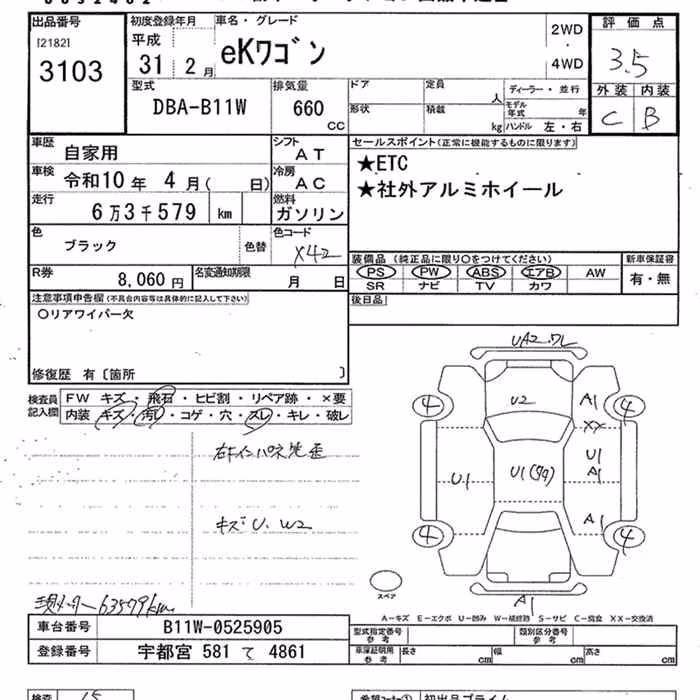 出品番号
[2182]
3103
初度登録年月
平成
31 2月
車名・グレード
eKワゴン
2WD
4WD
評価点
3.5
外装 内装
C B
型式
DBA-B11W
排気量
660
CC
ドア
定員
人
形状
積載
kg
ディーラー・並行
モデル年式 年
ハンドル 左・右
車歴
自家用
シフト
AT
車検
令和10年 4月( 日)
冷房
AC
走行
6万3千579 km
燃料
ガソリン
色
ブラック
色替
色コード
X42
R券
8,060円
名変通知期限
月 日
セールスポイント(正常に機能するものに限ります)
★ETC
★社外アルミホイール
装備品(純正品に限り○をつけてください)
PS PW ABS エアB AW
SR ナビ TV カワ
新車保証書
有・無
後日品
注意事項申告欄(不具合内容等は具体的に記入して下さい)
○リアワイパー欠
修復歴 有〔箇所 〕
検査員記入欄
FW キズ・飛石・ヒビ割・リペア跡・×要
内装 キズ・汚れ・コゲ・穴・スレ・キレ・破レ
キズ U、W2
現メーター63579km
UA2.ワレ
U2
A1
XX
U1
A1
U1(59)
U1
A1
A1
4
4
4
4
スペア
A-キズ E-エクボ U-凹み W-補修跡 S-サビ C-腐食 XX-交換済
車台番号
B11W-0525905
登録番号
宇都宮 581 て 4861
型式指定番号
参考
類別区分番号
参考
車庫証明用
参考
長さ cm
幅 cm
高さ cm
検査
15
希望コーナー①
初出品プライム